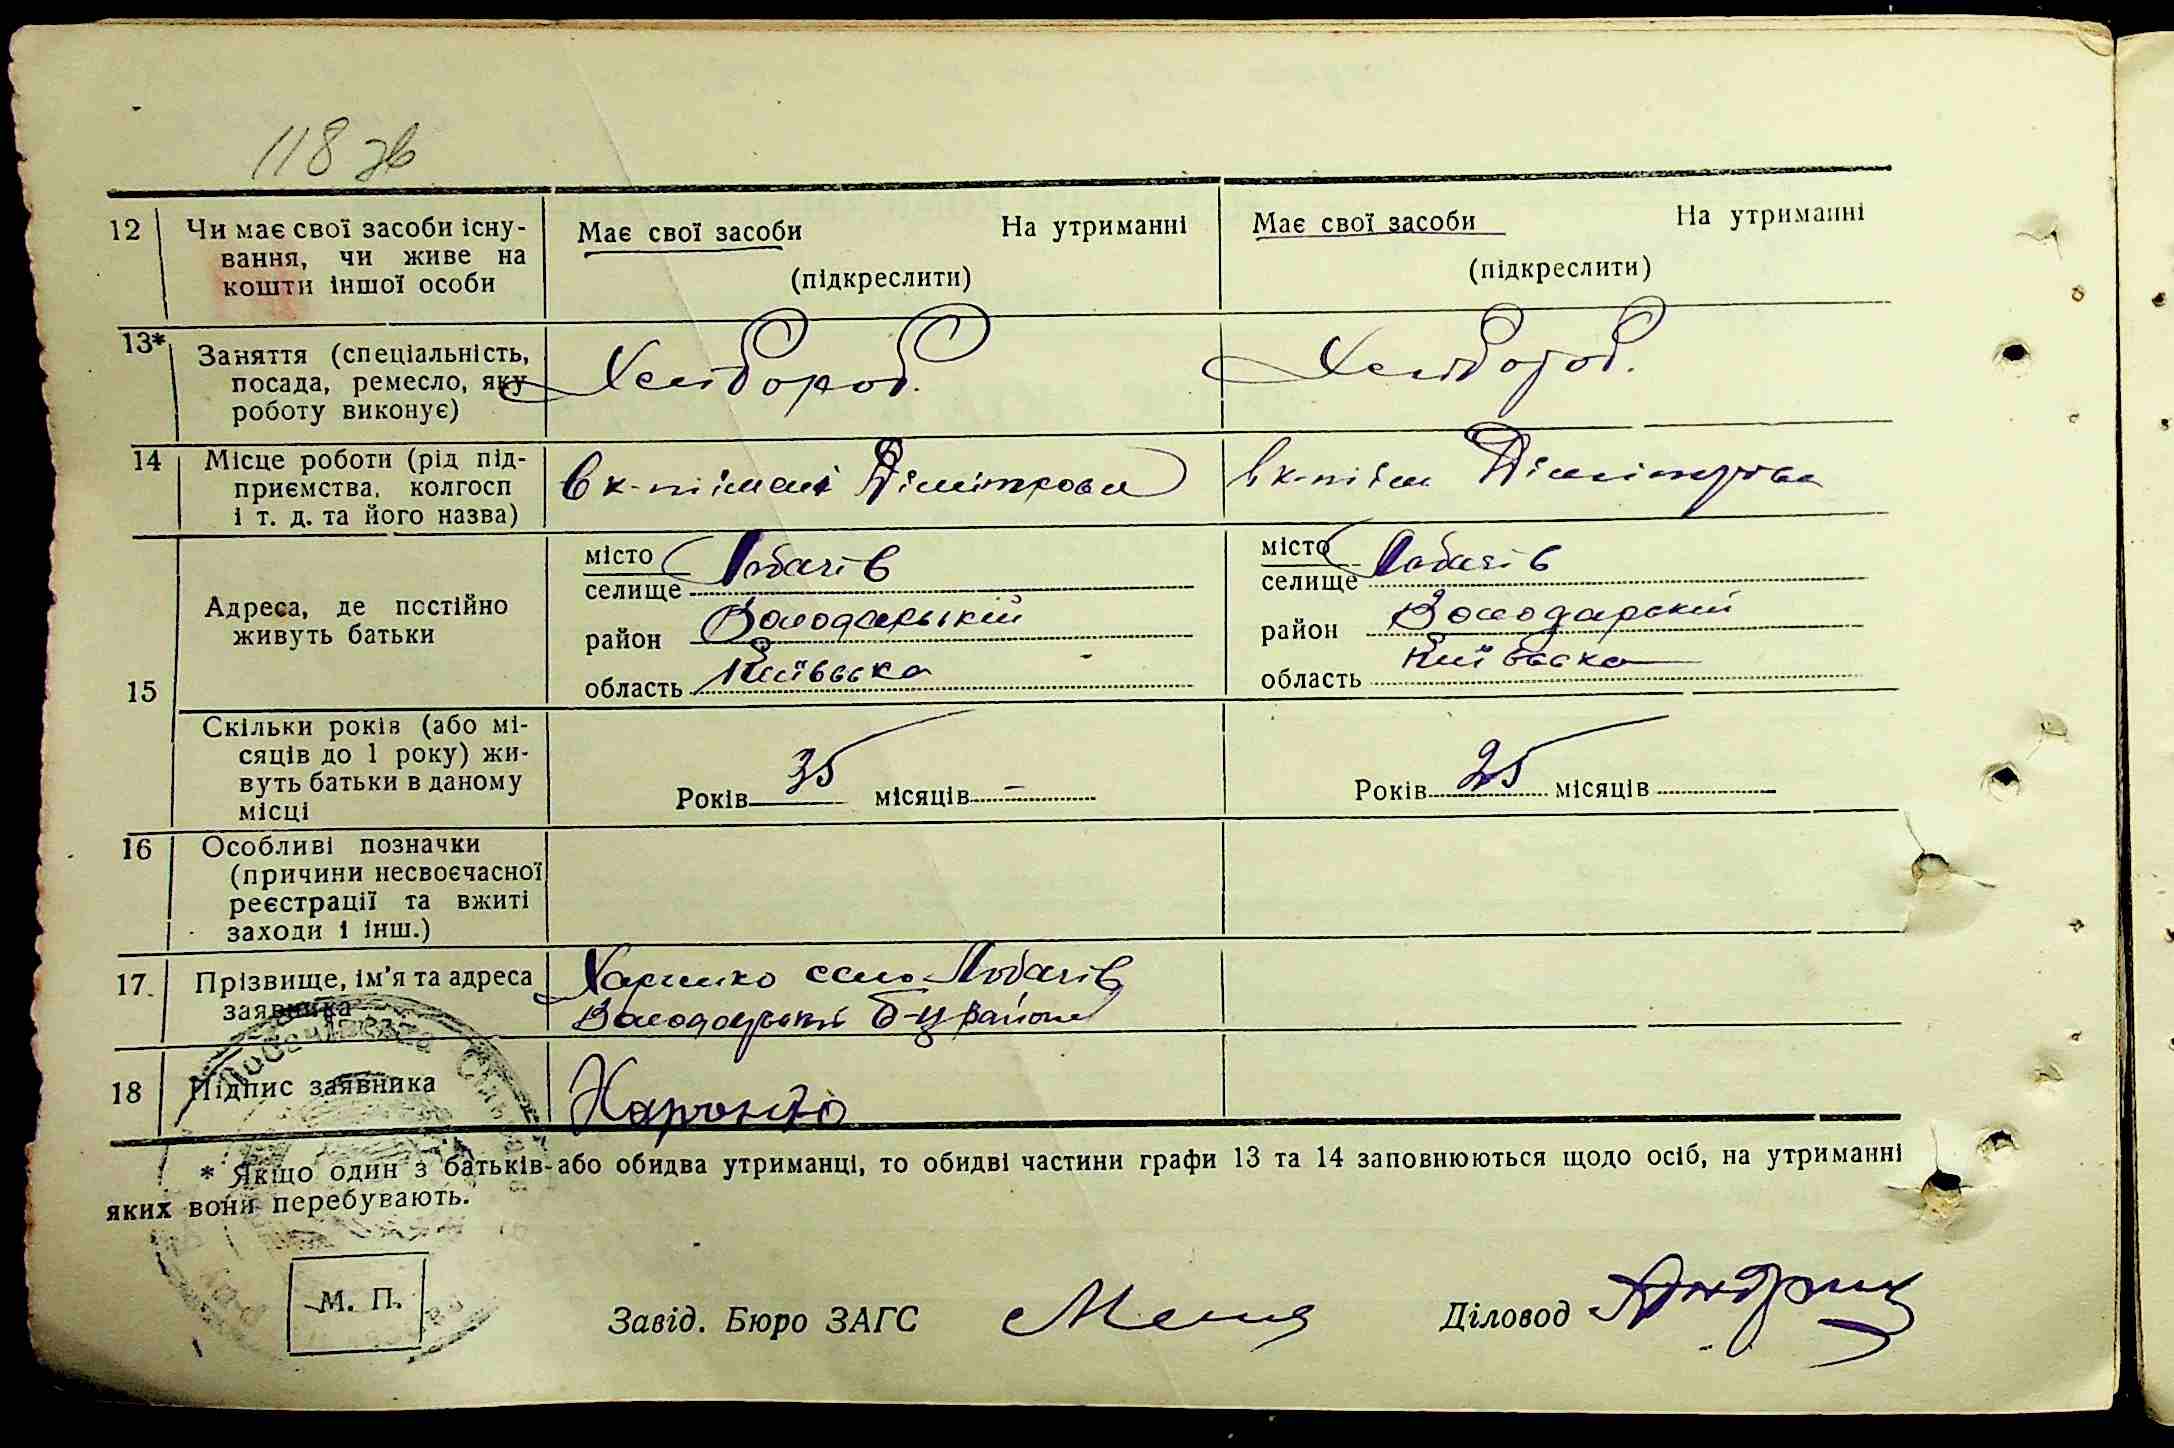 118 зв
12 Чи має свої засоби існу- Має свої засоби На утриманні Має свої засоби На утриманні
вання, чи живе на
кошти іншої особи (підкреслити) (підкреслити)
13* Заняття (спеціальність,
посада, ремесло, яку Хлібороб. Хлібороб.
роботу виконує)
14 Місце роботи (рід під-
приємства, колгосп В к-пі імені Дімітрова В к-пі ім Дімітрова
і т. д. та його назва)
15 Адреса, де постійно
живуть батьки
місто Лобачів місто Лобачів
селище селище
район Володарський район Володарський
область Київська область Київська
Скільки років (або мі-
сяців до 1 року) жи-
вуть батьки в даному Років 35 місяців - Років 25 місяців
місці
16 Особливі позначки
(причини несвоєчасної
реєстрації та вжиті
заходи і інш.)
17 Прізвище, ім'я та адреса село Лобачів
заявника Володарський Б-Ц району
18 Підпис заявника
* Якщо один з батьків або обидва утриманці, то обидві частини графи 13 та 14 заповнюються щодо осіб, на утриманні
яких вони перебувають.
М. П.
Завід. Бюро ЗАГС Діловод